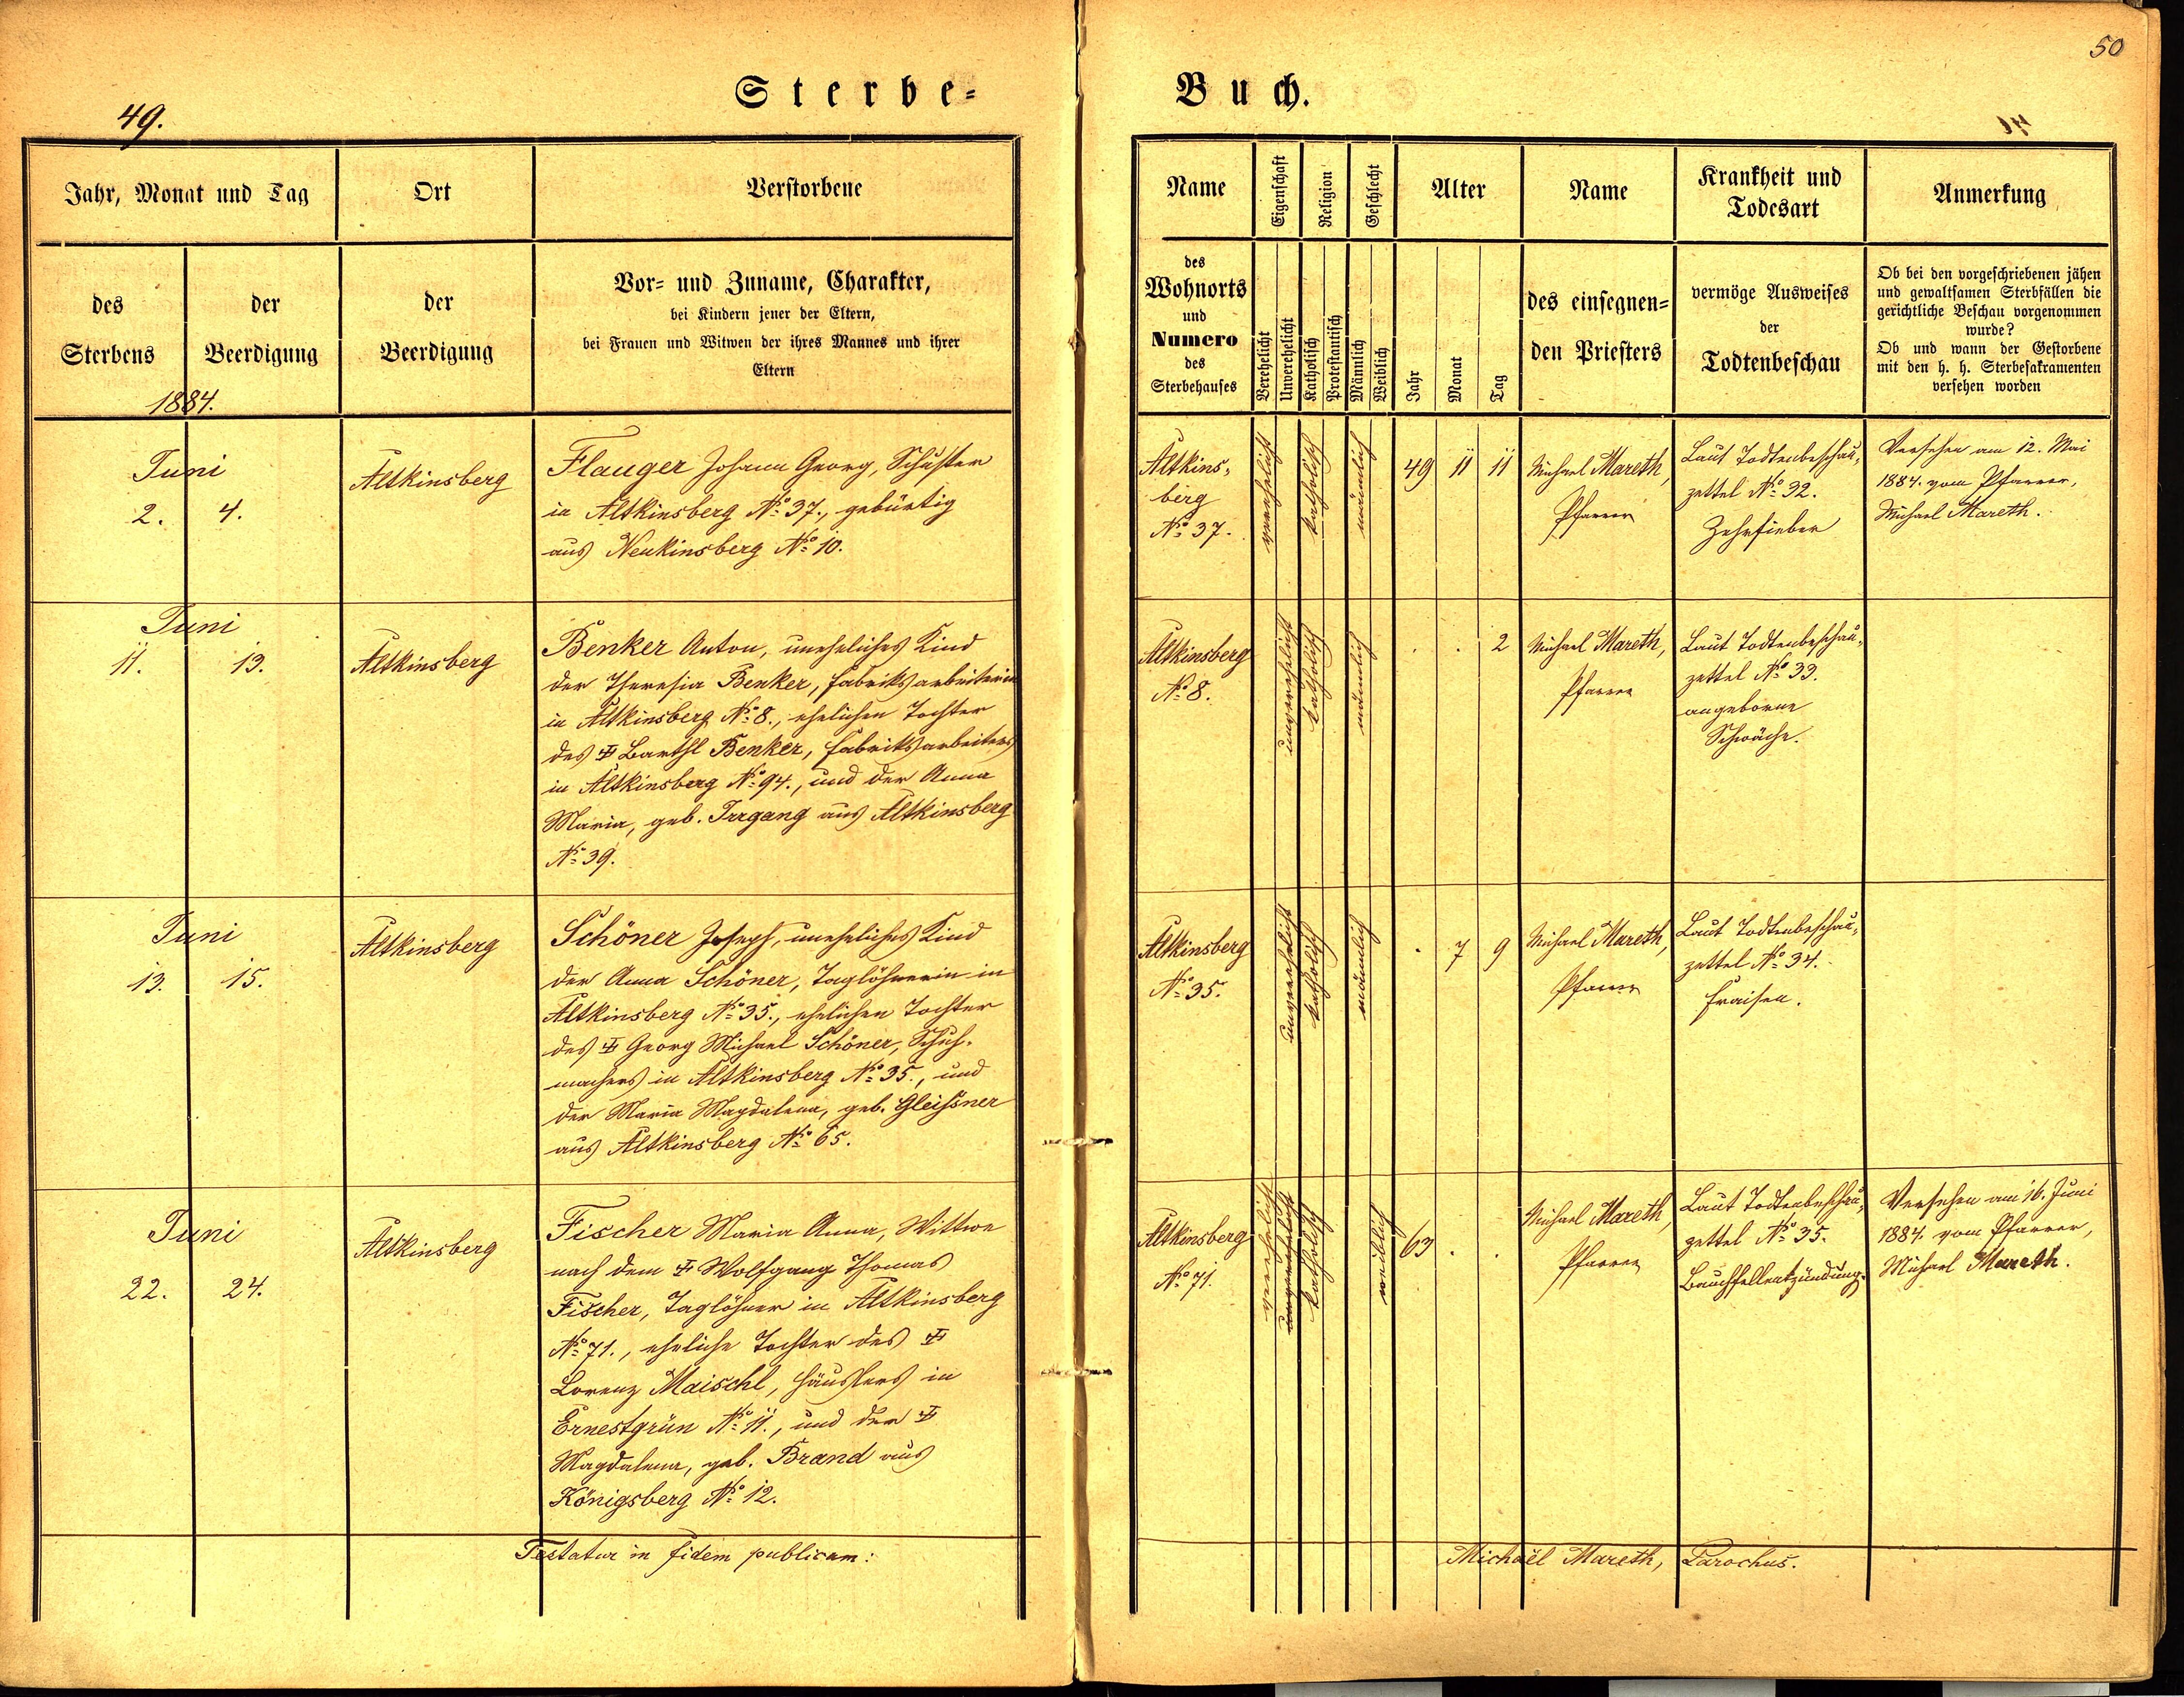 50
Sterbe-
Buch.
49.
Jahr, Monat und Tag
Ort
Verstorbene
des
Sterbens
der
Beerdigung
der
Beerdigung
Vor- und Zuname, Charakter,
bei Kindern jener der Eltern,
bei Frauen und Witwen der ihres Mannes und ihrer
Eltern
1884.
Name
Eigenschaft
Religion
Geschlecht
Alter
Name
Krankheit und
Todesart
Anmerkung
des
Wohnorts
und
Numero
des
Sterbehauses
Verehelicht
Unverehelicht
Katholisch
Protestantisch
Männlich
Weiblich
Jahr
Monat
Tag
des einsegnen-
den Priesters
vermöge Ausweises
der
Todtenbeschau
Ob bei den vorgeschriebenen jähen
und gewaltsamen Sterbfällen die
gerichtliche Beschau vorgenommen
wurde?
Ob und wann der Gestorbene
mit den h. h. Sterbesakramenten
versehen worden
Juni
2. 4.
Altkinsberg
Flauger Johann Georg, Schuster
in Altkinsberg No 37., gebürtig
aus Neukinsberg No 10.
Altkins-
berg
No 37.
verehelicht
katholisch
männlich
49 11 11
Michael Mareth,
Pfarrer
Laut Todtenbeschau-
zettel No 32.
Zehrfieber
Versehen am 12. Mai
1884. vom Pfarrer,
Michael Mareth.
Juni
11. 13.
Altkinsberg
Benker Anton, uneheliches Kind
der Theresia Benker, Fabriksarbeiterin
in Altkinsberg No 8., ehelichen Tochter
des ‡ Barthl Benker, Fabriksarbeiters
in Altkinsberg No 94., und der Anna
Maria, geb. Irrgang aus Altkinsberg
No 39.
Altkinsberg
No 8.
unverehelicht
katholisch
männlich
. . 2
Michael Mareth,
Pfarrer
Laut Todtenbeschau-
zettel No 33.
angeborne
Schwäche.
Juni
13. 15.
Altkinsberg
Schöner Joseph, uneheliches Kind
der Anna Schöner, Taglöhnerin in
Altkinsberg No 35., ehelichen Tochter
des ‡ Georg Michael Schöner, Schuh-
machers in Altkinsberg No 35., und
der Maria Magdalena, geb. Gleißner
aus Altkinsberg No 65.
Altkinsberg
No 35.
unverehelicht
katholisch
männlich
. 7 9
Michael Mareth,
Pfarrer
Laut Todtenbeschau-
zettel No 34.
Fraisen.
Juni
22. 24.
Altkinsberg
Fischer Maria Anna, Wittwe
nach dem ‡ Wolfgang Thomas
Fischer, Taglöhner in Altkinsberg
No 71., eheliche Tochter des ‡
Lorenz Maischl, Häuslers in
Ernestgrün No 11., und der ‡
Magdalena, geb. Brand aus
Königsberg No 12.
Altkinsberg
No 71.
verehelicht
unverehelicht
katholisch
weiblich
63 . .
Michael Mareth,
Pfarrer
Laut Todtenbeschau-
zettel No 35.
Bauchfellentzündung.
Versehen am 16. Juni
1884. vom Pfarrer,
Michael Mareth.
Testatur in fidem publicam:
Michaël Mareth, Parochus.